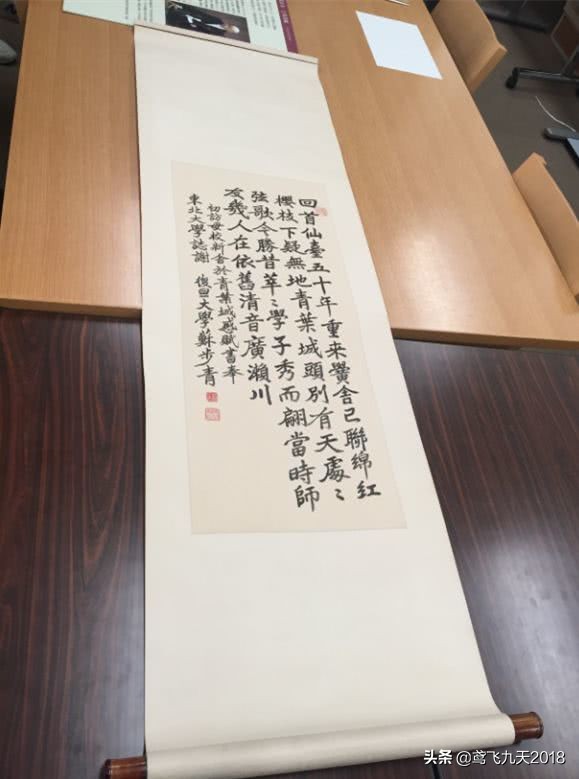 回首仙臺五十年重來黌舍已聯綿紅
櫻枝下疑無地青葉城頭別有天處〻
弦歌今勝昔莘〻學子秀而翩當時師
友幾人在依舊清音廣瀨川
初訪母校新舍於青葉城感賦書奉
東北大學誌謝 復旦大學蘇步青
头条 @鸢飞九天2018